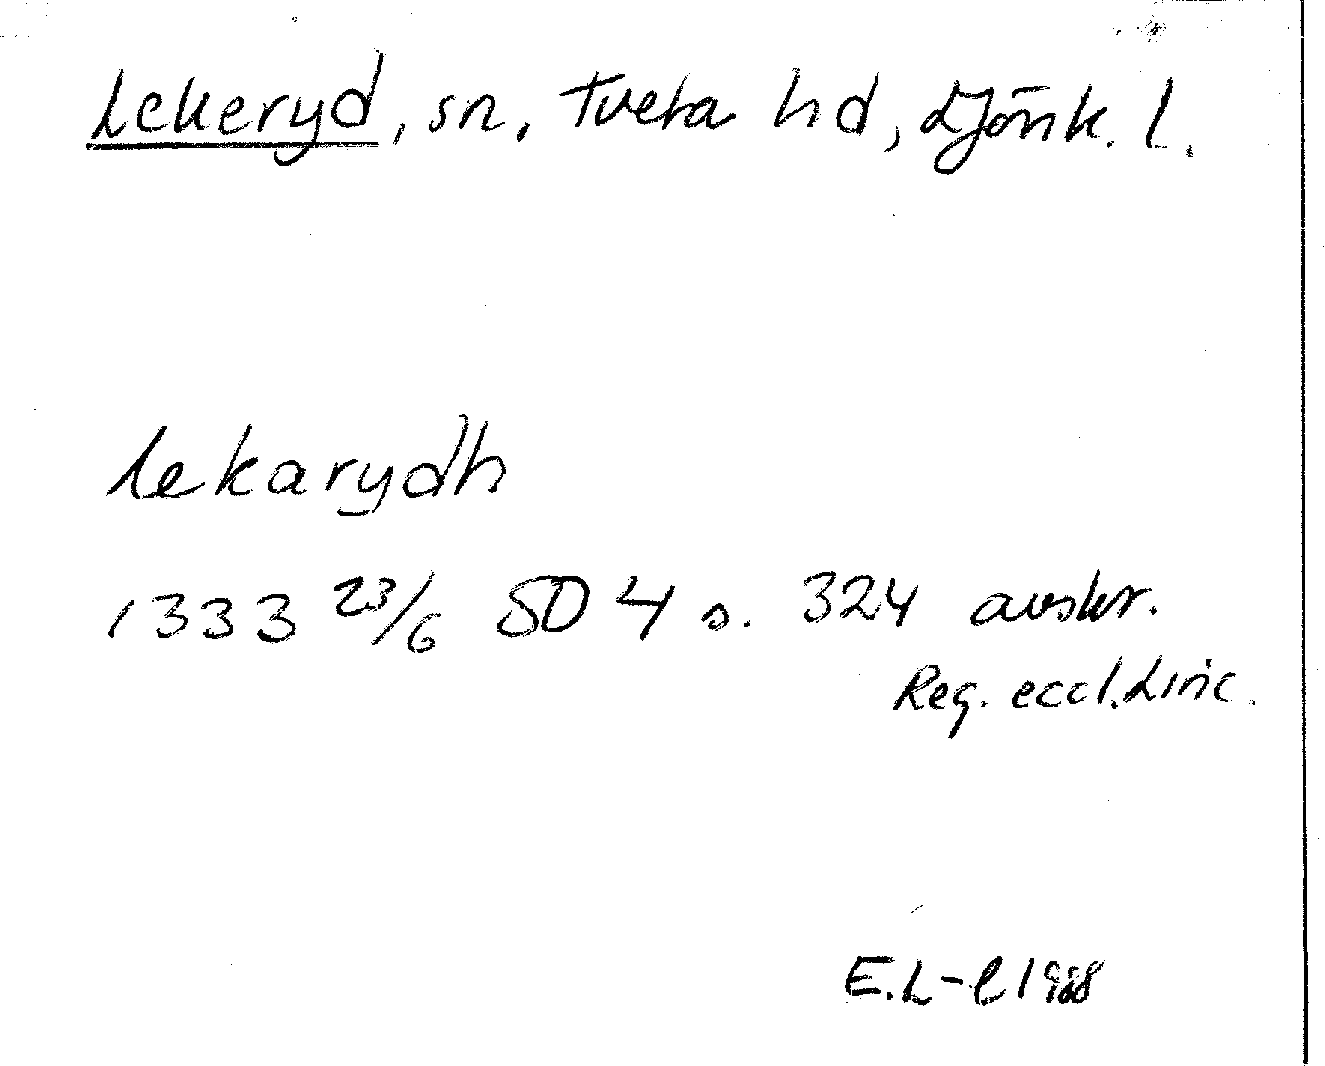 Lekeryd, sn, Tveta hd, Jönk. l.
Lekarydh
1333 23/6 SD 4 s. 324 avskr.
Reg. eccl. Linc.
E.L-l 1968